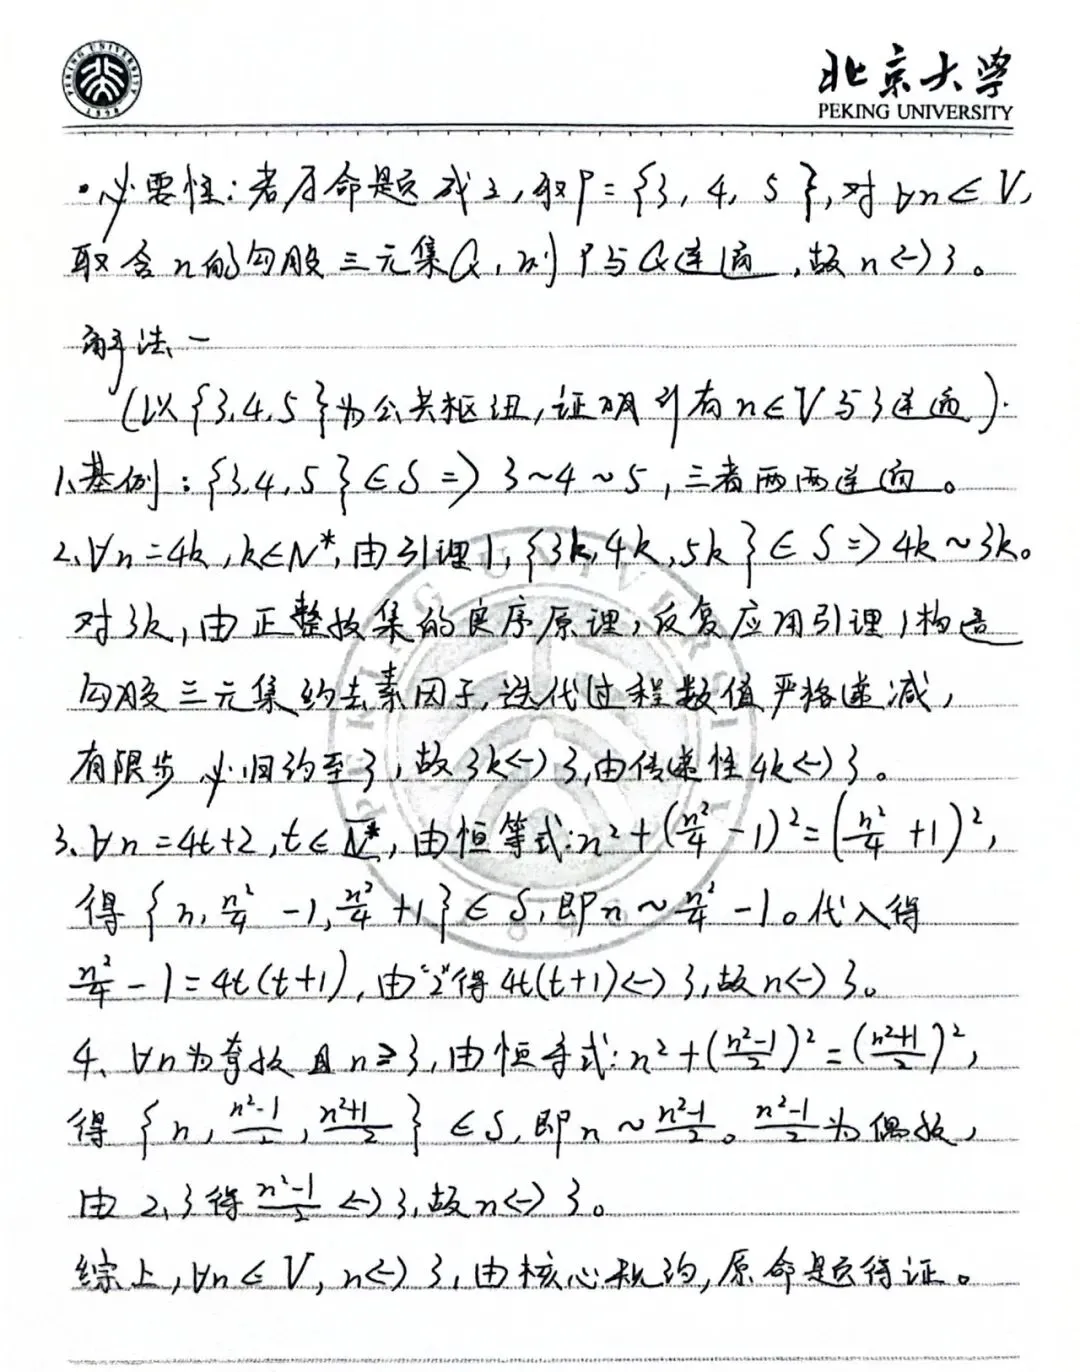 北京大学
PEKING UNIVERSITY
·必要性:若原命题成立,取P={3,4,5},对∀n∈V,
取含n的勾股三元集Q,则P与Q连通,故n↔3。
解法一
(以{3,4,5}为公共枢纽,证明所有n∈V与3连通).
1、基例:{3,4,5}∈S⇒3~4~5,三者两两连通。
2、∀n=4k,k∈N*,由引理1,{3k,4k,5k}∈S⇒4k~3k。
对3k,由正整数集的良序原理,反复应用引理1构造
勾股三元集约去素因子,迭代过程数值严格递减,
有限步必归约至3,故3k↔3,由传递性4k↔3。
3、∀n=4t+2,t∈N*,由恒等式:n²+(n²/4-1)²=(n²/4+1)²,
得{n,n²/4-1,n²/4+1}∈S,即n~n²/4-1。代入得
n²/4-1=4t(t+1),由"2"得4t(t+1)↔3,故n↔3。
4、∀n为奇数且n≥3,由恒等式:n²+((n²-1)/2)²=((n²+1)/2)²,
得{n,(n²-1)/2,(n²+1)/2}∈S,即n~(n²-1)/2。(n²-1)/2为偶数,
由2,3得(n²-1)/2↔3,故n↔3。
综上,∀n∈V,n↔3,由核心规约,原命题得证。